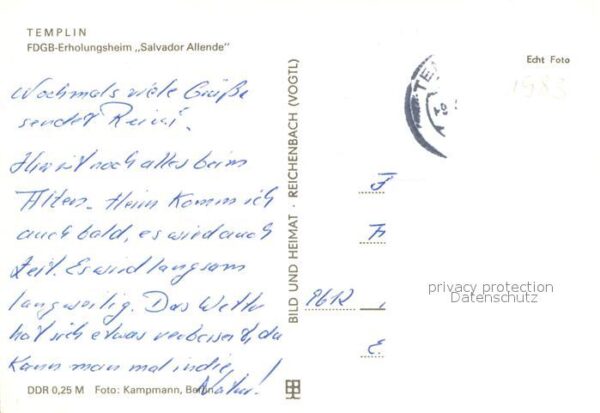 TEMPLIN
FDGB-Erholungsheim „Salvador Allende"
Echt Foto
1983
TE
Nochmals viele Grüße
sendet Reini.
Hier ist noch alles beim
Alten. Heim komm ich
auch bald, es wird auch
Zeit. Es wird langsam
langweilig. Das Wetter
hat sich etwas verbessert, da
kann man mal in die
Natur!
BILD UND HEIMAT · REICHENBACH (VOGTL)
F
F
9612
E.
privacy protection
Datenschutz
DDR 0,25 M Foto: Kampmann, Berlin